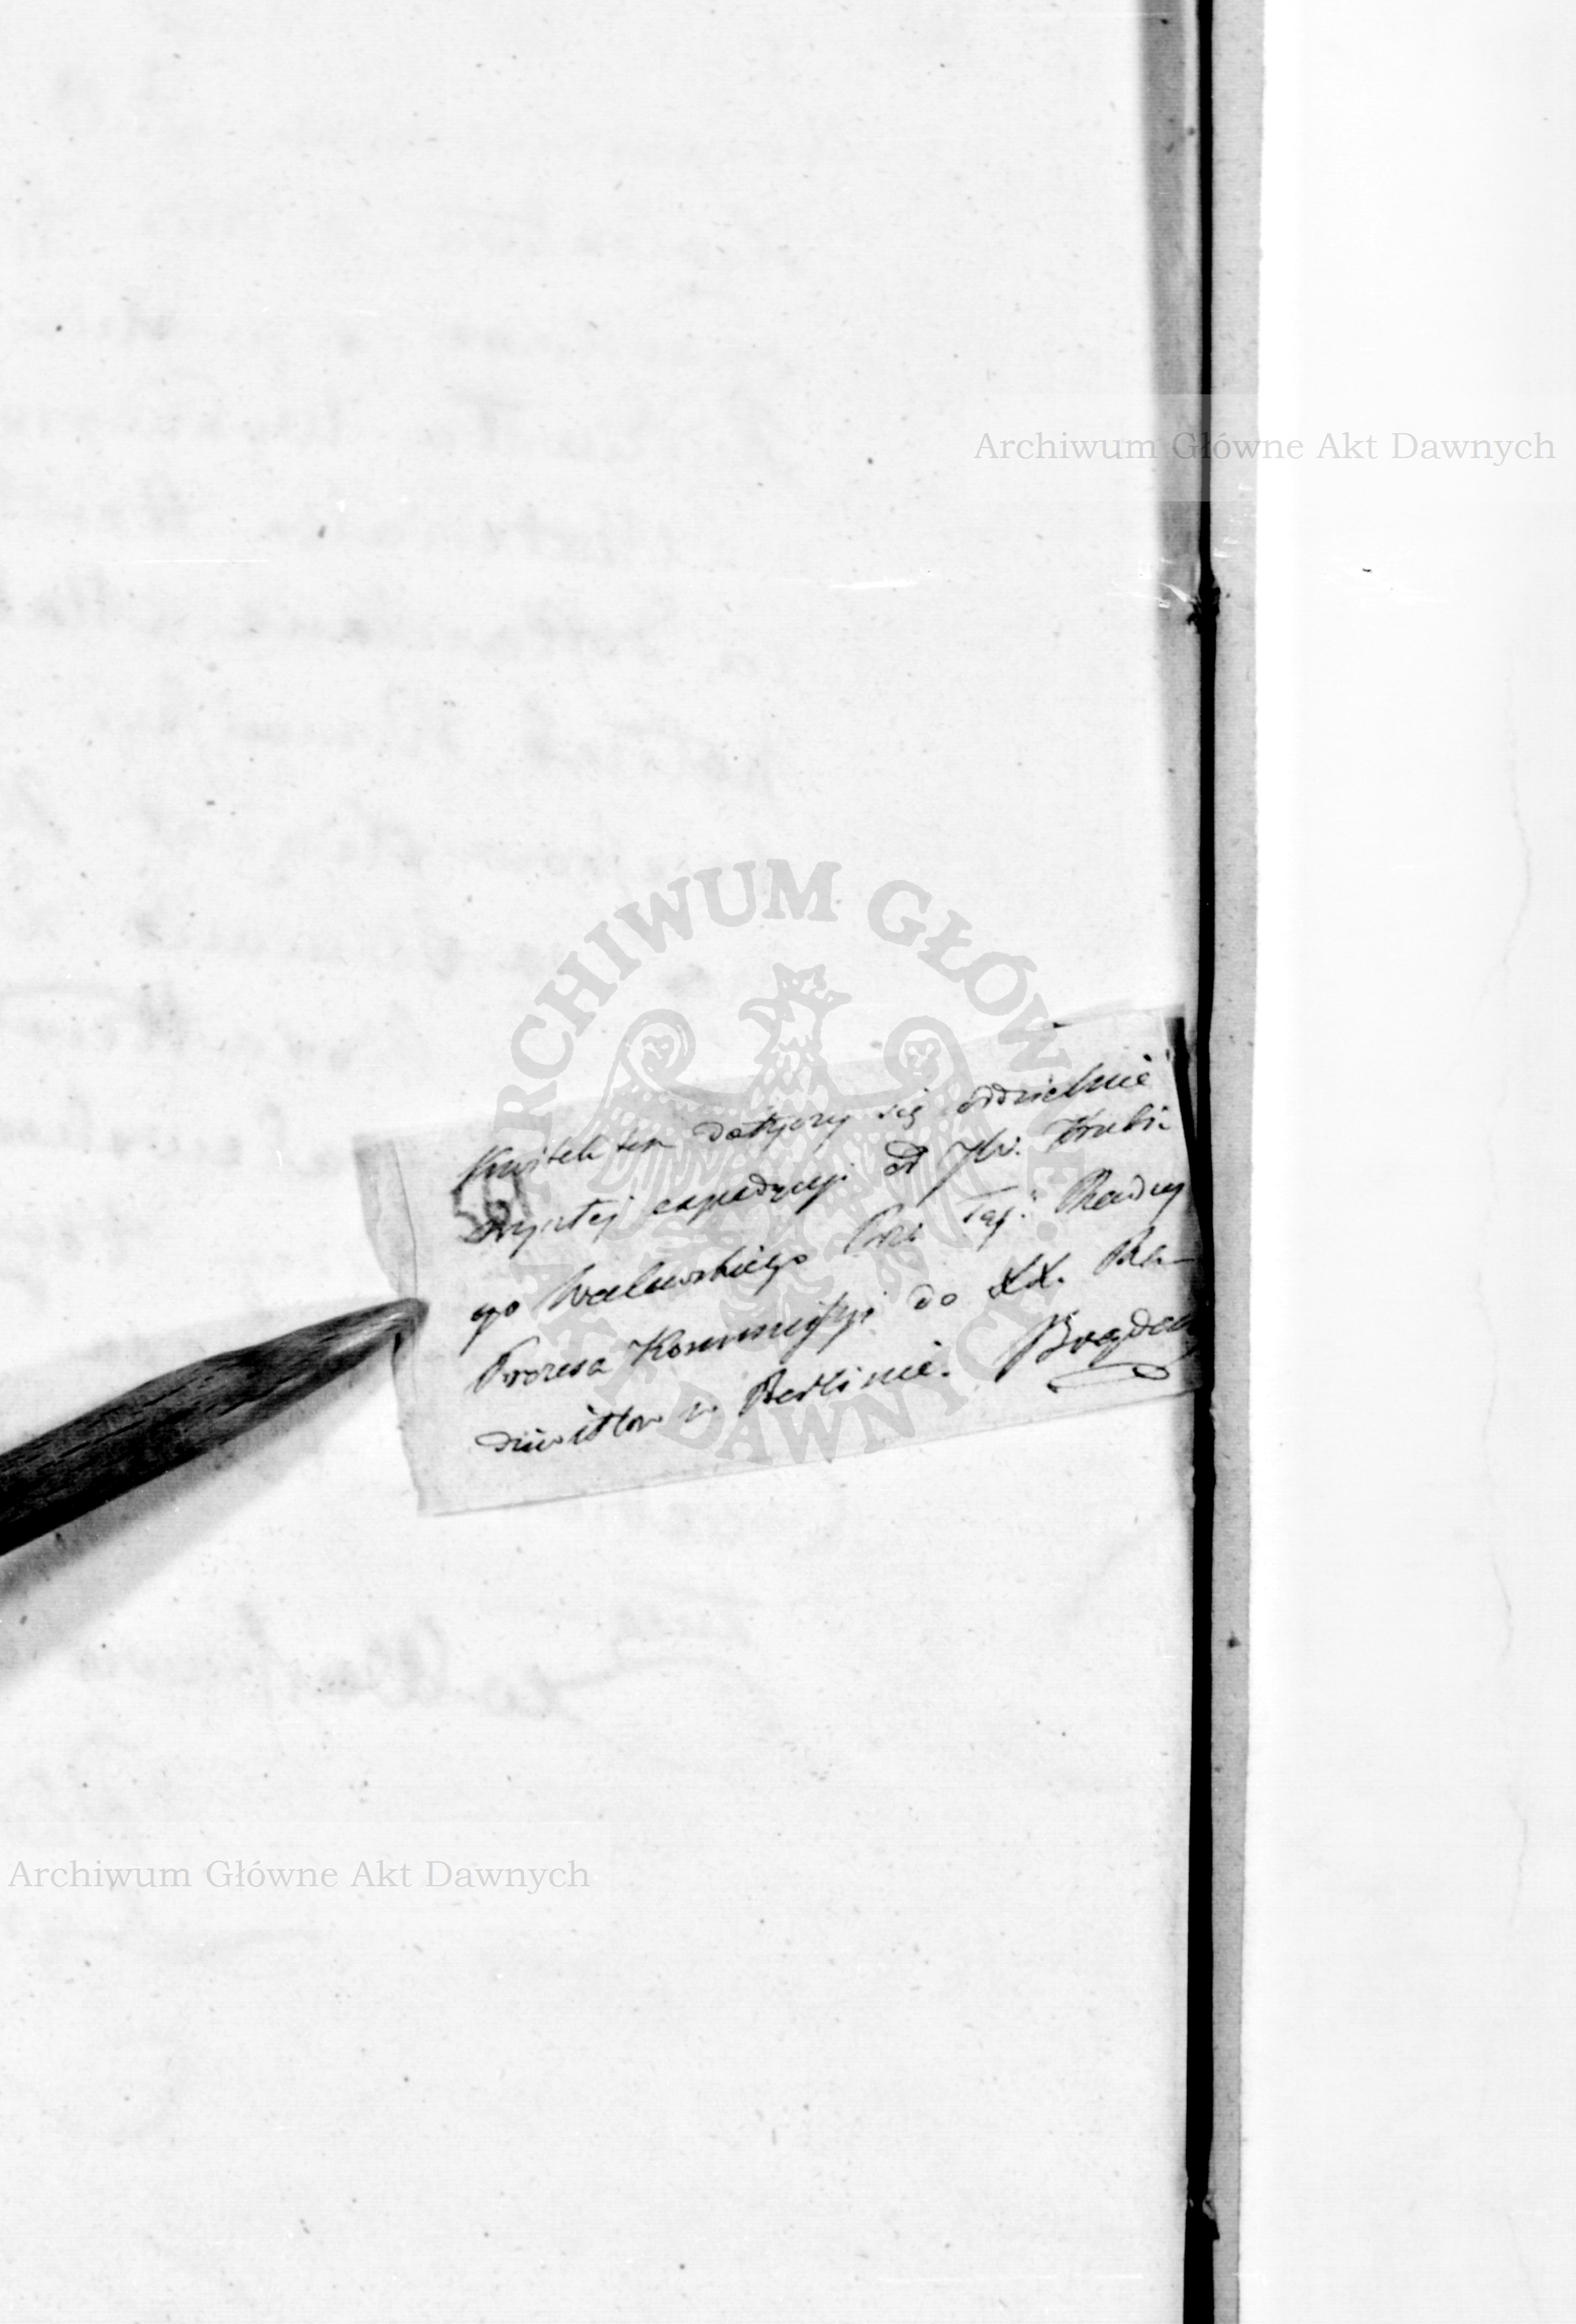 Archiwum Główne Akt Dawnych
ARCHIWUM GŁÓWNE AKT DAWNYCH
Kwitek ten dotyczy się oddzielnie
expedycyi od JW. Hrabi-
go Walewskiego Taj. Radcy
Prezesa Kommissyi do XX. Ra-
dziwiłłow w Berlinie. Bogdan
Archiwum Główne Akt Dawnych